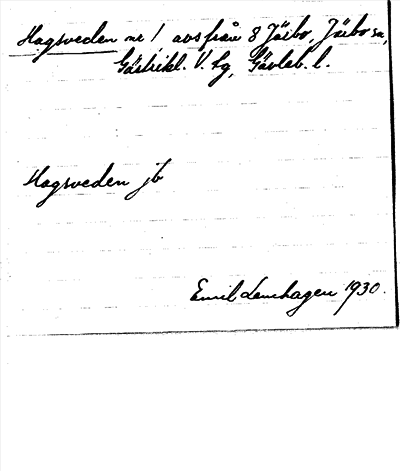 Hagsveden nr 1 avs från 8 Järbo, Järbo sn,
Gästrikl. V. tg, Gävleb. l.
Hagsveden jb
Emil Lenhagen 1930.